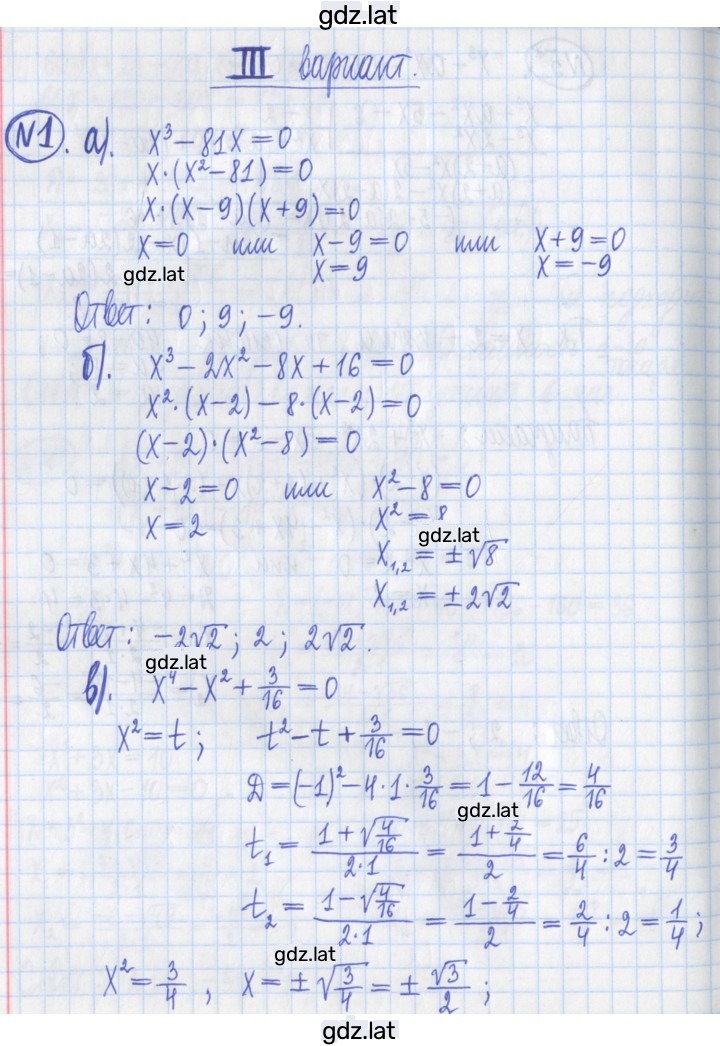 gdz.lat
III вариант.
№1. а). x³ − 81x = 0
x·(x² − 81) = 0
x·(x − 9)(x + 9) = 0
x = 0 или x − 9 = 0 или x + 9 = 0
gdz.lat x = 9 x = −9
Ответ: 0; 9; −9.
б). x³ − 2x² − 8x + 16 = 0
x²·(x − 2) − 8·(x − 2) = 0
(x − 2)·(x² − 8) = 0
x − 2 = 0 или x² − 8 = 0
x = 2 x² = 8
gdz.lat
x₁,₂ = ±√8
x₁,₂ = ±2√2
Ответ: −2√2; 2; 2√2.
gdz.lat
в). x⁴ − x² + 3/16 = 0
x² = t; t² − t + 3/16 = 0
D = (−1)² − 4·1·3/16 = 1 − 12/16 = 4/16
gdz.lat
t₁ = (1 + √(4/16))/(2·1) = (1 + 2/4)/2 = 6/4 : 2 = 3/4
t₂ = (1 − √(4/16))/(2·1) = (1 − 2/4)/2 = 2/4 : 2 = 1/4;
gdz.lat
x² = 3/4, x = ±√(3/4) = ±√3/2;
gdz.lat